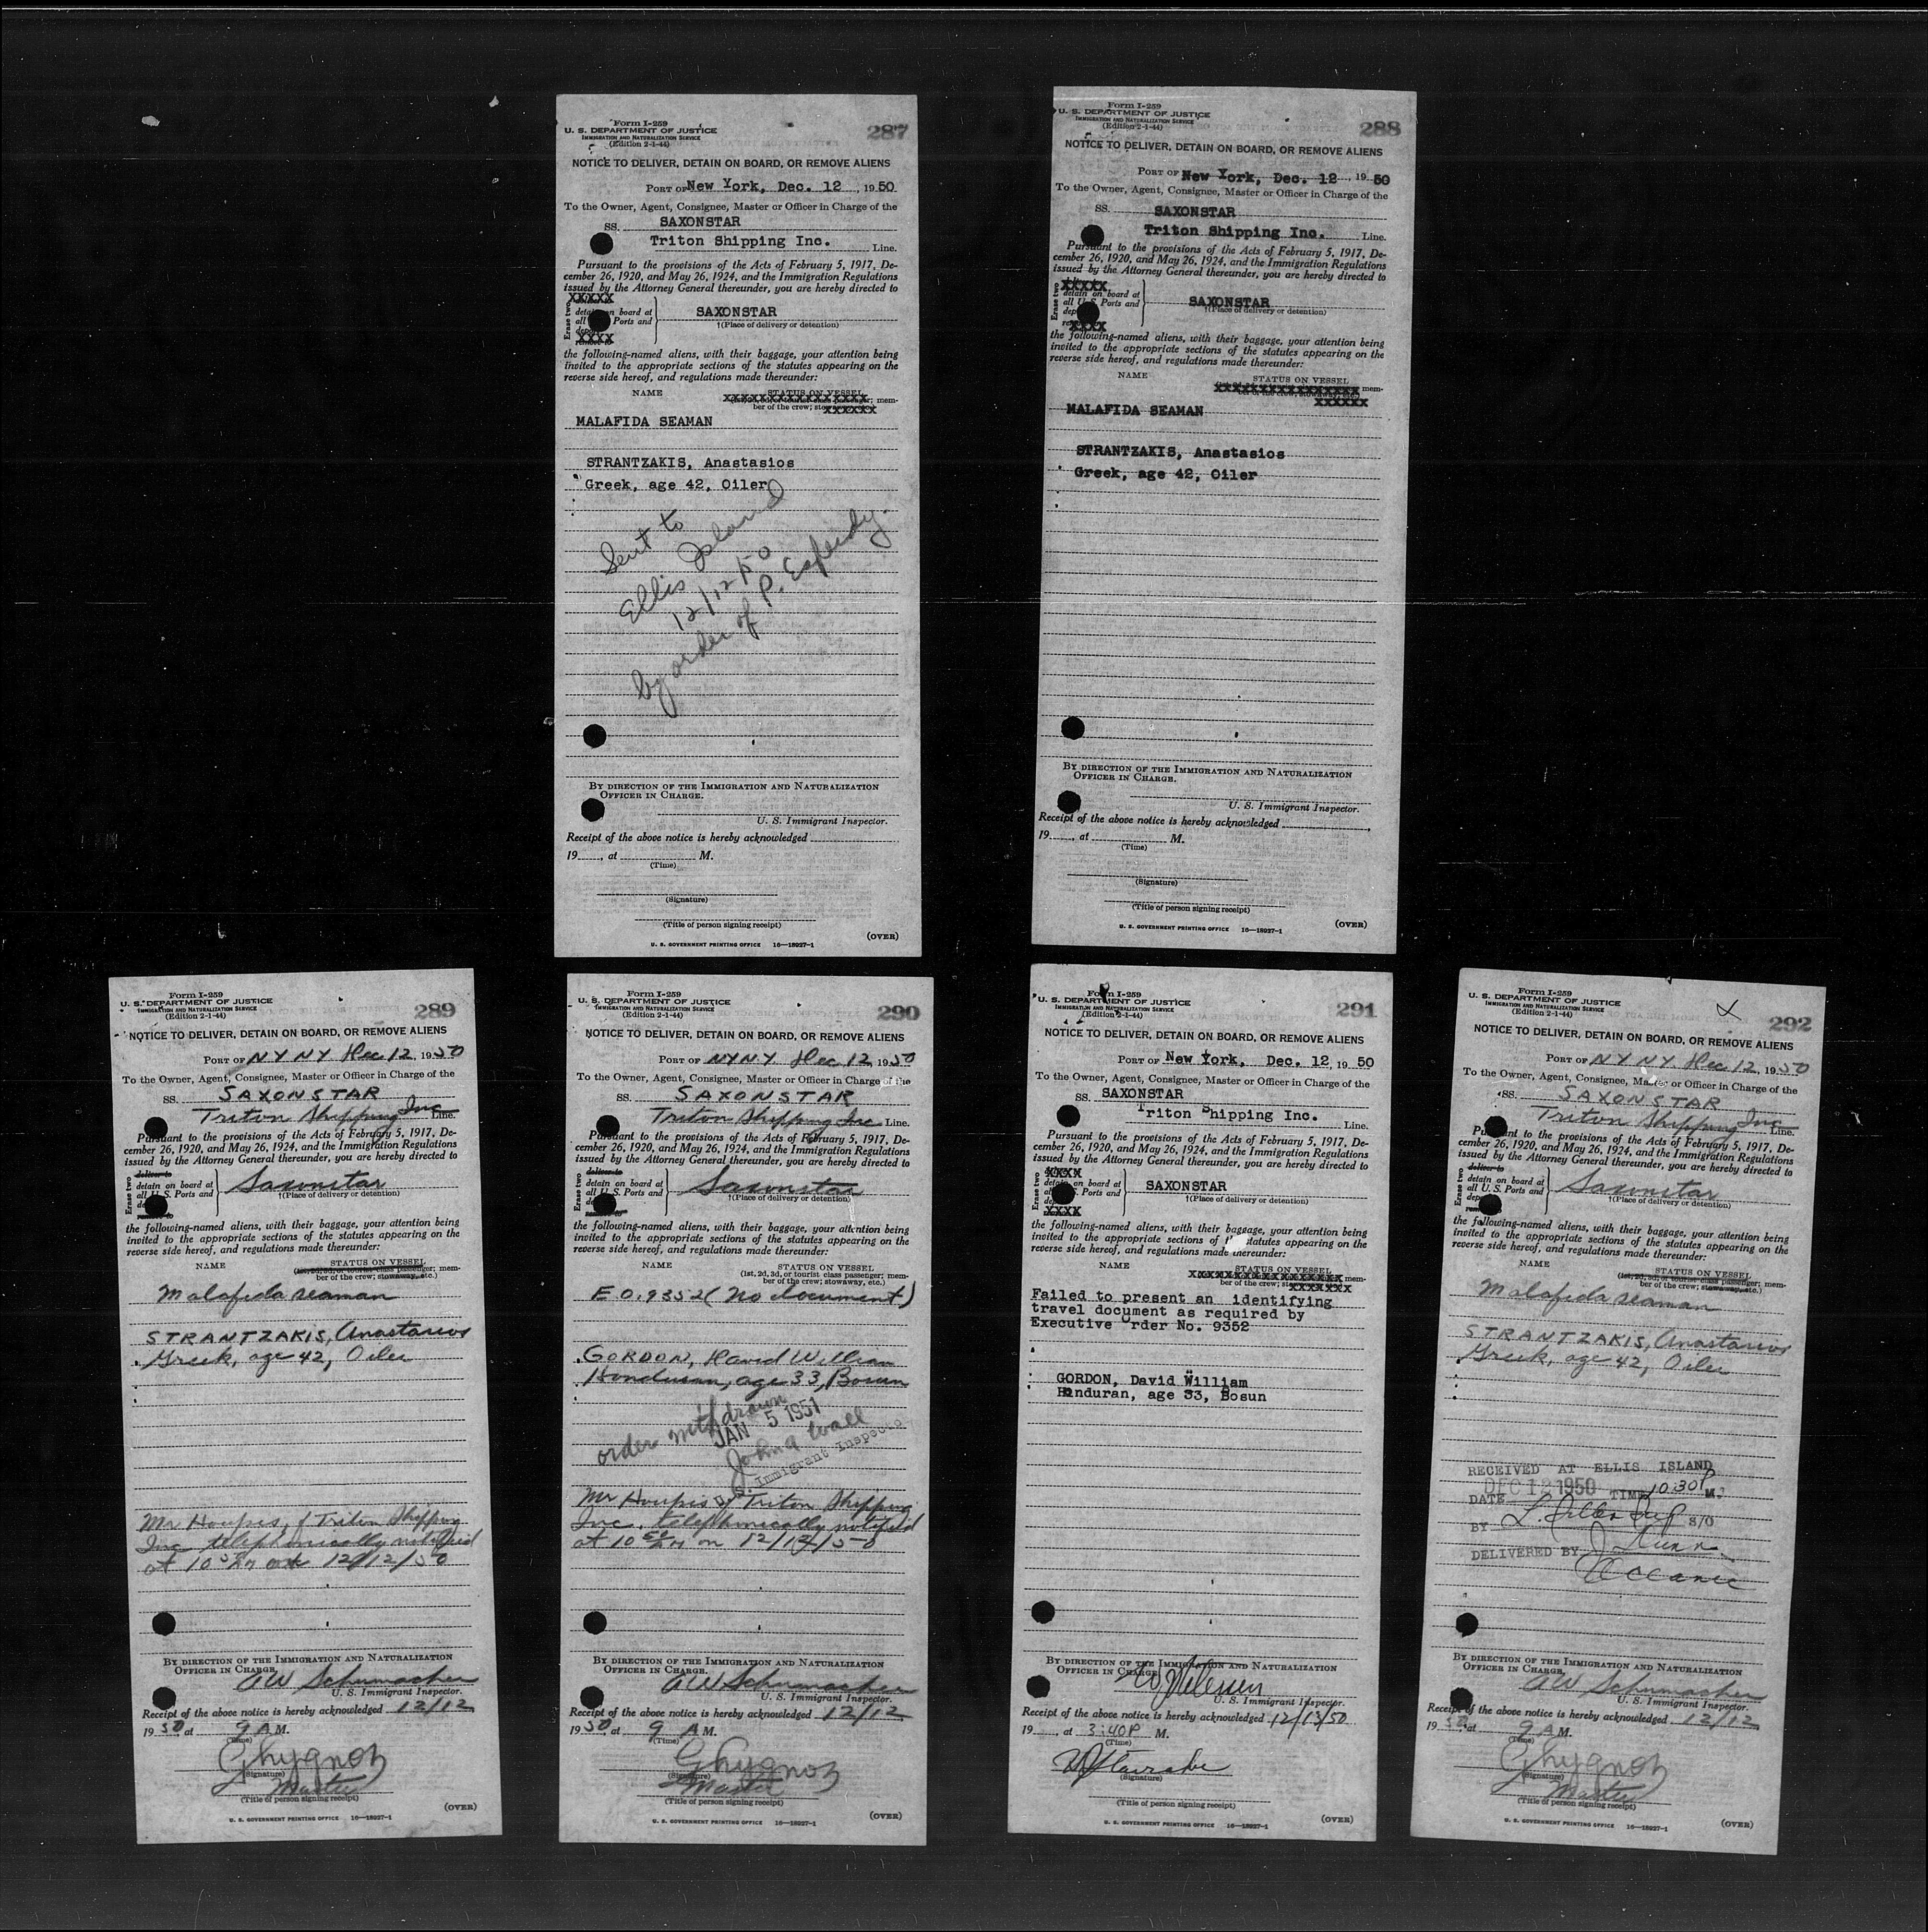 Form I-259
U. S. DEPARTMENT OF JUSTICE
IMMIGRATION AND NATURALIZATION SERVICE
(Edition 2-1-44)
287
NOTICE TO DELIVER, DETAIN ON BOARD, OR REMOVE ALIENS
PORT OF New York, Dec. 12, 1950
To the Owner, Agent, Consignee, Master or Officer in Charge of the
SS. SAXONSTAR
Triton Shipping Inc. Line.
Pursuant to the provisions of the Acts of February 5, 1917, De-
cember 26, 1920, and May 26, 1924, and the Immigration Regulations
issued by the Attorney General thereunder, you are hereby directed to
Erase two
XXXXX
detain on board at
all Ports and
XXXX
remove to
SAXONSTAR
†(Place of delivery or detention)
the following-named aliens, with their baggage, your attention being
invited to the appropriate sections of the statutes appearing on the
reverse side hereof, and regulations made thereunder:
NAME STATUS ON VESSEL
mem-
ber of the crew;
MALAFIDA SEAMAN
STRANTZAKIS, Anastasios
Greek, age 42, Oiler
Sent to
Ellis Island
12/12/50
by order of P. Esperdy.
BY DIRECTION OF THE IMMIGRATION AND NATURALIZATION
OFFICER IN CHARGE.
U. S. Immigrant Inspector.
Receipt of the above notice is hereby acknowledged
19____, at ____ M.
(Time)
(Signature)
(Title of person signing receipt)
(OVER)
U. S. GOVERNMENT PRINTING OFFICE 16—18927-1
Form I-259
U. S. DEPARTMENT OF JUSTICE
IMMIGRATION AND NATURALIZATION SERVICE
(Edition 2-1-44)
288
NOTICE TO DELIVER, DETAIN ON BOARD, OR REMOVE ALIENS
PORT OF New York, Dec. 12, 1950
To the Owner, Agent, Consignee, Master or Officer in Charge of the
SS. SAXONSTAR
Triton Shipping Inc. Line.
Pursuant to the provisions of the Acts of February 5, 1917, De-
cember 26, 1920, and May 26, 1924, and the Immigration Regulations
issued by the Attorney General thereunder, you are hereby directed to
Erase two
XXXXX
detain on board at
all U.S. Ports and
XXXX
SAXONSTAR
†(Place of delivery or detention)
the following-named aliens, with their baggage, your attention being
invited to the appropriate sections of the statutes appearing on the
reverse side hereof, and regulations made thereunder:
NAME STATUS ON VESSEL
mem-
ber of the crew; stowaway, etc.)
MALAFIDA SEAMAN
STRANTZAKIS, Anastasios
Greek, age 42, Oiler
BY DIRECTION OF THE IMMIGRATION AND NATURALIZATION
OFFICER IN CHARGE.
U. S. Immigrant Inspector.
Receipt of the above notice is hereby acknowledged
19____, at ____ M.
(Time)
(Signature)
(Title of person signing receipt)
(OVER)
U. S. GOVERNMENT PRINTING OFFICE 16—18927-1
Form I-259
U. S. DEPARTMENT OF JUSTICE
IMMIGRATION AND NATURALIZATION SERVICE
(Edition 2-1-44)
289
NOTICE TO DELIVER, DETAIN ON BOARD, OR REMOVE ALIENS
PORT OF NY NY Dec 12 1950
To the Owner, Agent, Consignee, Master or Officer in Charge of the
SS. SAXONSTAR
Triton Shipping Inc Line.
Pursuant to the provisions of the Acts of February 5, 1917, De-
cember 26, 1920, and May 26, 1924, and the Immigration Regulations
issued by the Attorney General thereunder, you are hereby directed to
Erase two
deliver to
detain on board at
all U.S. Ports and
remove to
Saxonstar
†(Place of delivery or detention)
the following-named aliens, with their baggage, your attention being
invited to the appropriate sections of the statutes appearing on the
reverse side hereof, and regulations made thereunder:
NAME STATUS ON VESSEL
(1st, 2d, 3d, or tourist class passenger; mem-
ber of the crew; stowaway, etc.)
Malafida seaman
STRANTZAKIS, Anastasios
Greek, age 42, Oiler
Mr Houpis, of Triton Shipping
Inc telephonically notified
at 10 50 AM on 12/12/50
BY DIRECTION OF THE IMMIGRATION AND NATURALIZATION
OFFICER IN CHARGE.
AW Schumacher
U. S. Immigrant Inspector.
Receipt of the above notice is hereby acknowledged 12/12
1950 at 9 A M.
(Time)
(Signature)
Master
(Title of person signing receipt)
(OVER)
U. S. GOVERNMENT PRINTING OFFICE 16—18927-1
Form I-259
U. S. DEPARTMENT OF JUSTICE
IMMIGRATION AND NATURALIZATION SERVICE
(Edition 2-1-44)
290
NOTICE TO DELIVER, DETAIN ON BOARD, OR REMOVE ALIENS
PORT OF NY N.Y. Dec 12 1950
To the Owner, Agent, Consignee, Master or Officer in Charge of the
SS. SAXONSTAR
Triton Shipping Inc Line.
Pursuant to the provisions of the Acts of February 5, 1917, De-
cember 26, 1920, and May 26, 1924, and the Immigration Regulations
issued by the Attorney General thereunder, you are hereby directed to
Erase two
deliver to
detain on board at
all U.S. Ports and
remove to
Saxonstar
†(Place of delivery or detention)
the following-named aliens, with their baggage, your attention being
invited to the appropriate sections of the statutes appearing on the
reverse side hereof, and regulations made thereunder:
NAME STATUS ON VESSEL
(1st, 2d, 3d, or tourist class passenger; mem-
ber of the crew; stowaway, etc.)
E O. 9352 (No document)
GORDON, David William
Honduran, age 33, Bosun
order withdrawn
JAN 5 1951
John A Wall
U.S. Immigrant Inspector
Mr Houpis of Triton Shipping
Inc. telephonically notified
at 10 50 AM on 12/12/50
BY DIRECTION OF THE IMMIGRATION AND NATURALIZATION
OFFICER IN CHARGE.
AW Schumacher
U. S. Immigrant Inspector.
Receipt of the above notice is hereby acknowledged 12/12
1950 at 9 A M.
(Time)
(Signature)
Master
(Title of person signing receipt)
(OVER)
U. S. GOVERNMENT PRINTING OFFICE 16—18927-1
Form I-259
U. S. DEPARTMENT OF JUSTICE
IMMIGRATION AND NATURALIZATION SERVICE
(Edition 2-1-44)
291
NOTICE TO DELIVER, DETAIN ON BOARD, OR REMOVE ALIENS
PORT OF New York, Dec. 12 1950
To the Owner, Agent, Consignee, Master or Officer in Charge of the
SS. SAXONSTAR
Triton Shipping Inc.
Line.
Pursuant to the provisions of the Acts of February 5, 1917, De-
cember 26, 1920, and May 26, 1924, and the Immigration Regulations
issued by the Attorney General thereunder, you are hereby directed to
Erase two
XXXX
detain on board at
all U.S. Ports and
XXXX
SAXONSTAR
†(Place of delivery or detention)
the following-named aliens, with their baggage, your attention being
invited to the appropriate sections of the statutes appearing on the
reverse side hereof, and regulations made thereunder:
NAME STATUS ON VESSEL
mem-
ber of the crew;
Failed to present an identifying
travel document as required by
Executive Order No. 9352
GORDON, David William
Honduran, age 33, Bosun
BY DIRECTION OF THE IMMIGRATION AND NATURALIZATION
OFFICER IN CHARGE.
U. S. Immigrant Inspector.
Receipt of the above notice is hereby acknowledged 12/13/50
19____, at 3:40 P M.
(Time)
(Signature)
(Title of person signing receipt)
(OVER)
U. S. GOVERNMENT PRINTING OFFICE 16—18927-1
Form I-259
U. S. DEPARTMENT OF JUSTICE
IMMIGRATION AND NATURALIZATION SERVICE
(Edition 2-1-44)
X
292
NOTICE TO DELIVER, DETAIN ON BOARD, OR REMOVE ALIENS
PORT OF NY NY. Dec 12, 1950
To the Owner, Agent, Consignee, Master or Officer in Charge of the
SS. SAXONSTAR
Triton Shipping Inc Line.
Pursuant to the provisions of the Acts of February 5, 1917, De-
cember 26, 1920, and May 26, 1924, and the Immigration Regulations
issued by the Attorney General thereunder, you are hereby directed to
Erase two
deliver to
detain on board at
all U.S. Ports and
Saxonstar
†(Place of delivery or detention)
the following-named aliens, with their baggage, your attention being
invited to the appropriate sections of the statutes appearing on the
reverse side hereof, and regulations made thereunder:
NAME STATUS ON VESSEL
(1st, 2d, 3d, or tourist class passenger; mem-
ber of the crew; stowaway, etc.)
Malafida seaman
STRANTZAKIS, Anastasios
Greek, age 42, Oiler
RECEIVED AT ELLIS ISLAND
DATE DEC 12 1950 TIME 10:30 P M.
BY S/O
DELIVERED BY J Dunn
Oceanic
BY DIRECTION OF THE IMMIGRATION AND NATURALIZATION
OFFICER IN CHARGE.
AW Schumacher
U. S. Immigrant Inspector.
Receipt of the above notice is hereby acknowledged 12/12
1950, at 9 A M.
(Time)
(Signature)
Master
(Title of person signing receipt)
(OVER)
U. S. GOVERNMENT PRINTING OFFICE 16—18927-1